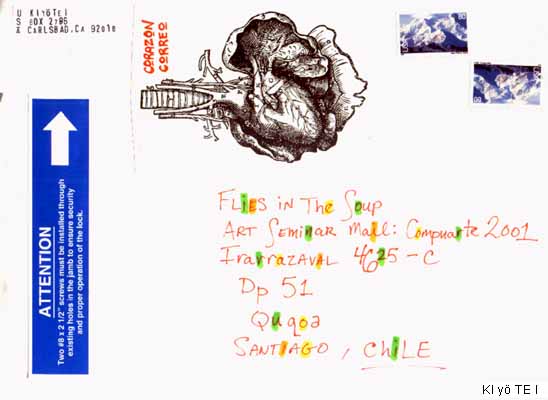 U KIyöTEI
S BOX 2786
A CARLSBAD, CA 92018
CORAZON
CORREO
ATTENTION
Two #8 x 2 1/2" screws must be installed through
existing holes in the jamb to ensure security
and proper operation of the lock.
FLiES iN The Soup
ART SEMINAR MAIL: Compuarte 2001
Irarrazaval 4625-C
Dp 51
Ququoa
SANTIAGO, ChiLE
KI yö TE I